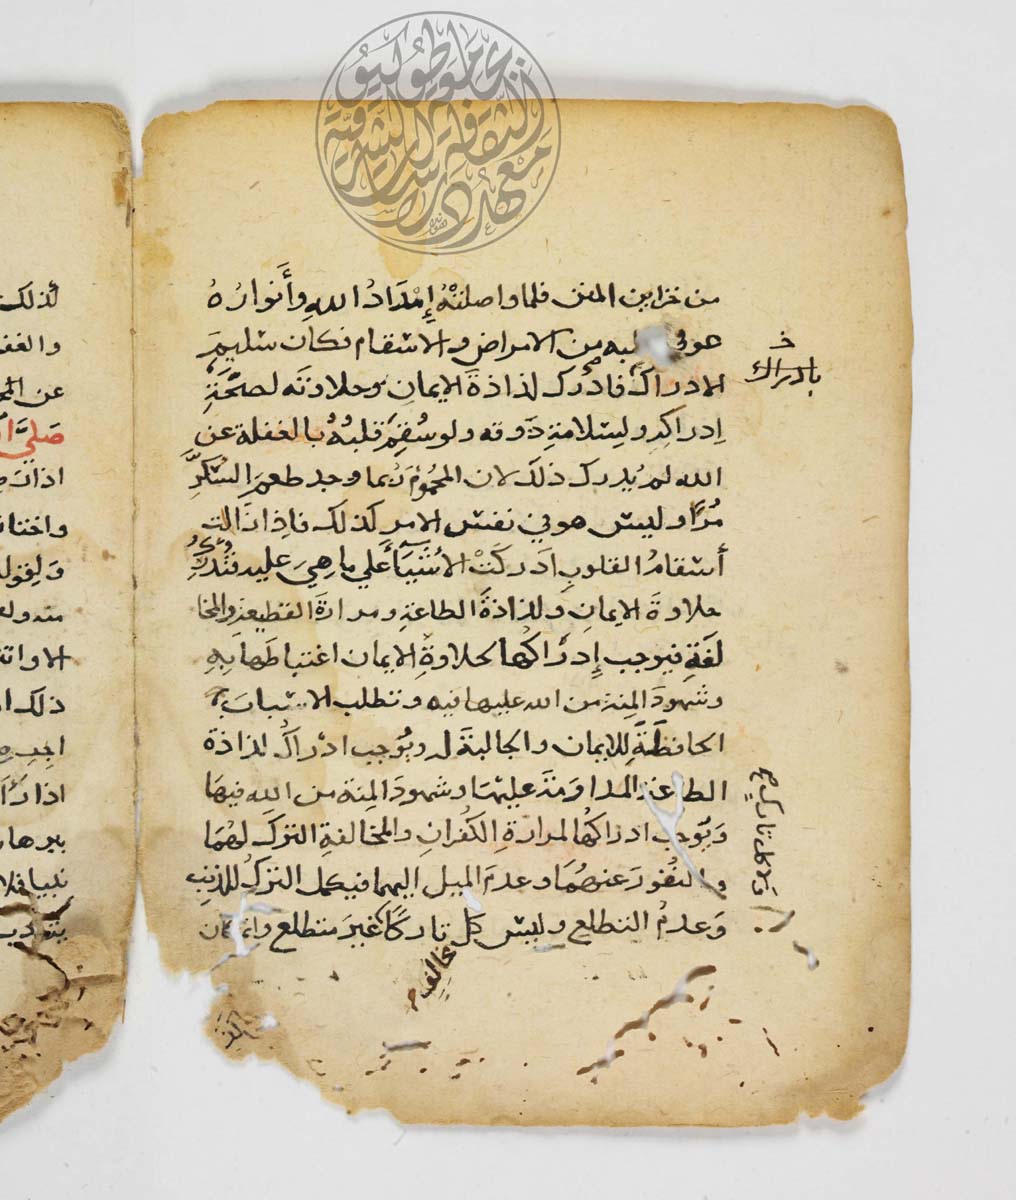 من خزاين المنن فلما واصلته إمداد الله وأنواره
عوفي قلبه من الامراض والاسقام فكان سليم
الادراك فادرك لذاذة الايمان وحلاوته لصحة
ادراكه ولسلامة ذوقه ولو سقم قلبه بالغفلة عن
الله لم يدرك ذلك لان المحموم ربما وجد طعم السكر
مرا وليس هو في نفس الامر كذلك فاذا زالت
أسقام القلوب ادركت الاشياء علي ما هي عليه فتدرك
حلاوة الايمان ولذاذة الطاعة ومرارة القطيعة والمخا
لفة فيوجب إدراكها لحلاوة الايمان اغتباطها به
وشهود المنة من الله عليها فيه وتطلب الاسباب
الحافظة للايمان والجالبة له ويوجب ادراك لذاذة
الطاعة المداومة عليها وشهود المنة من الله فيها
ويوجب ادراكها لمرارة الكفران والمخالفة الترك لهما
والنفور عنهما وعدم الميل اليهما فيكمل الترك للذنب
وعدم التطلع وليس كل تارك غير متطلع وانما كان
بادراك
ولا كل تارك
لذلك
عن
صلي
ذلك